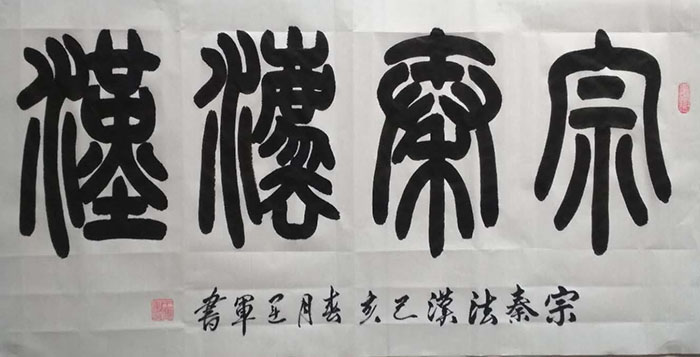 宗秦灋漢
宗秦法漢己亥春月軍書